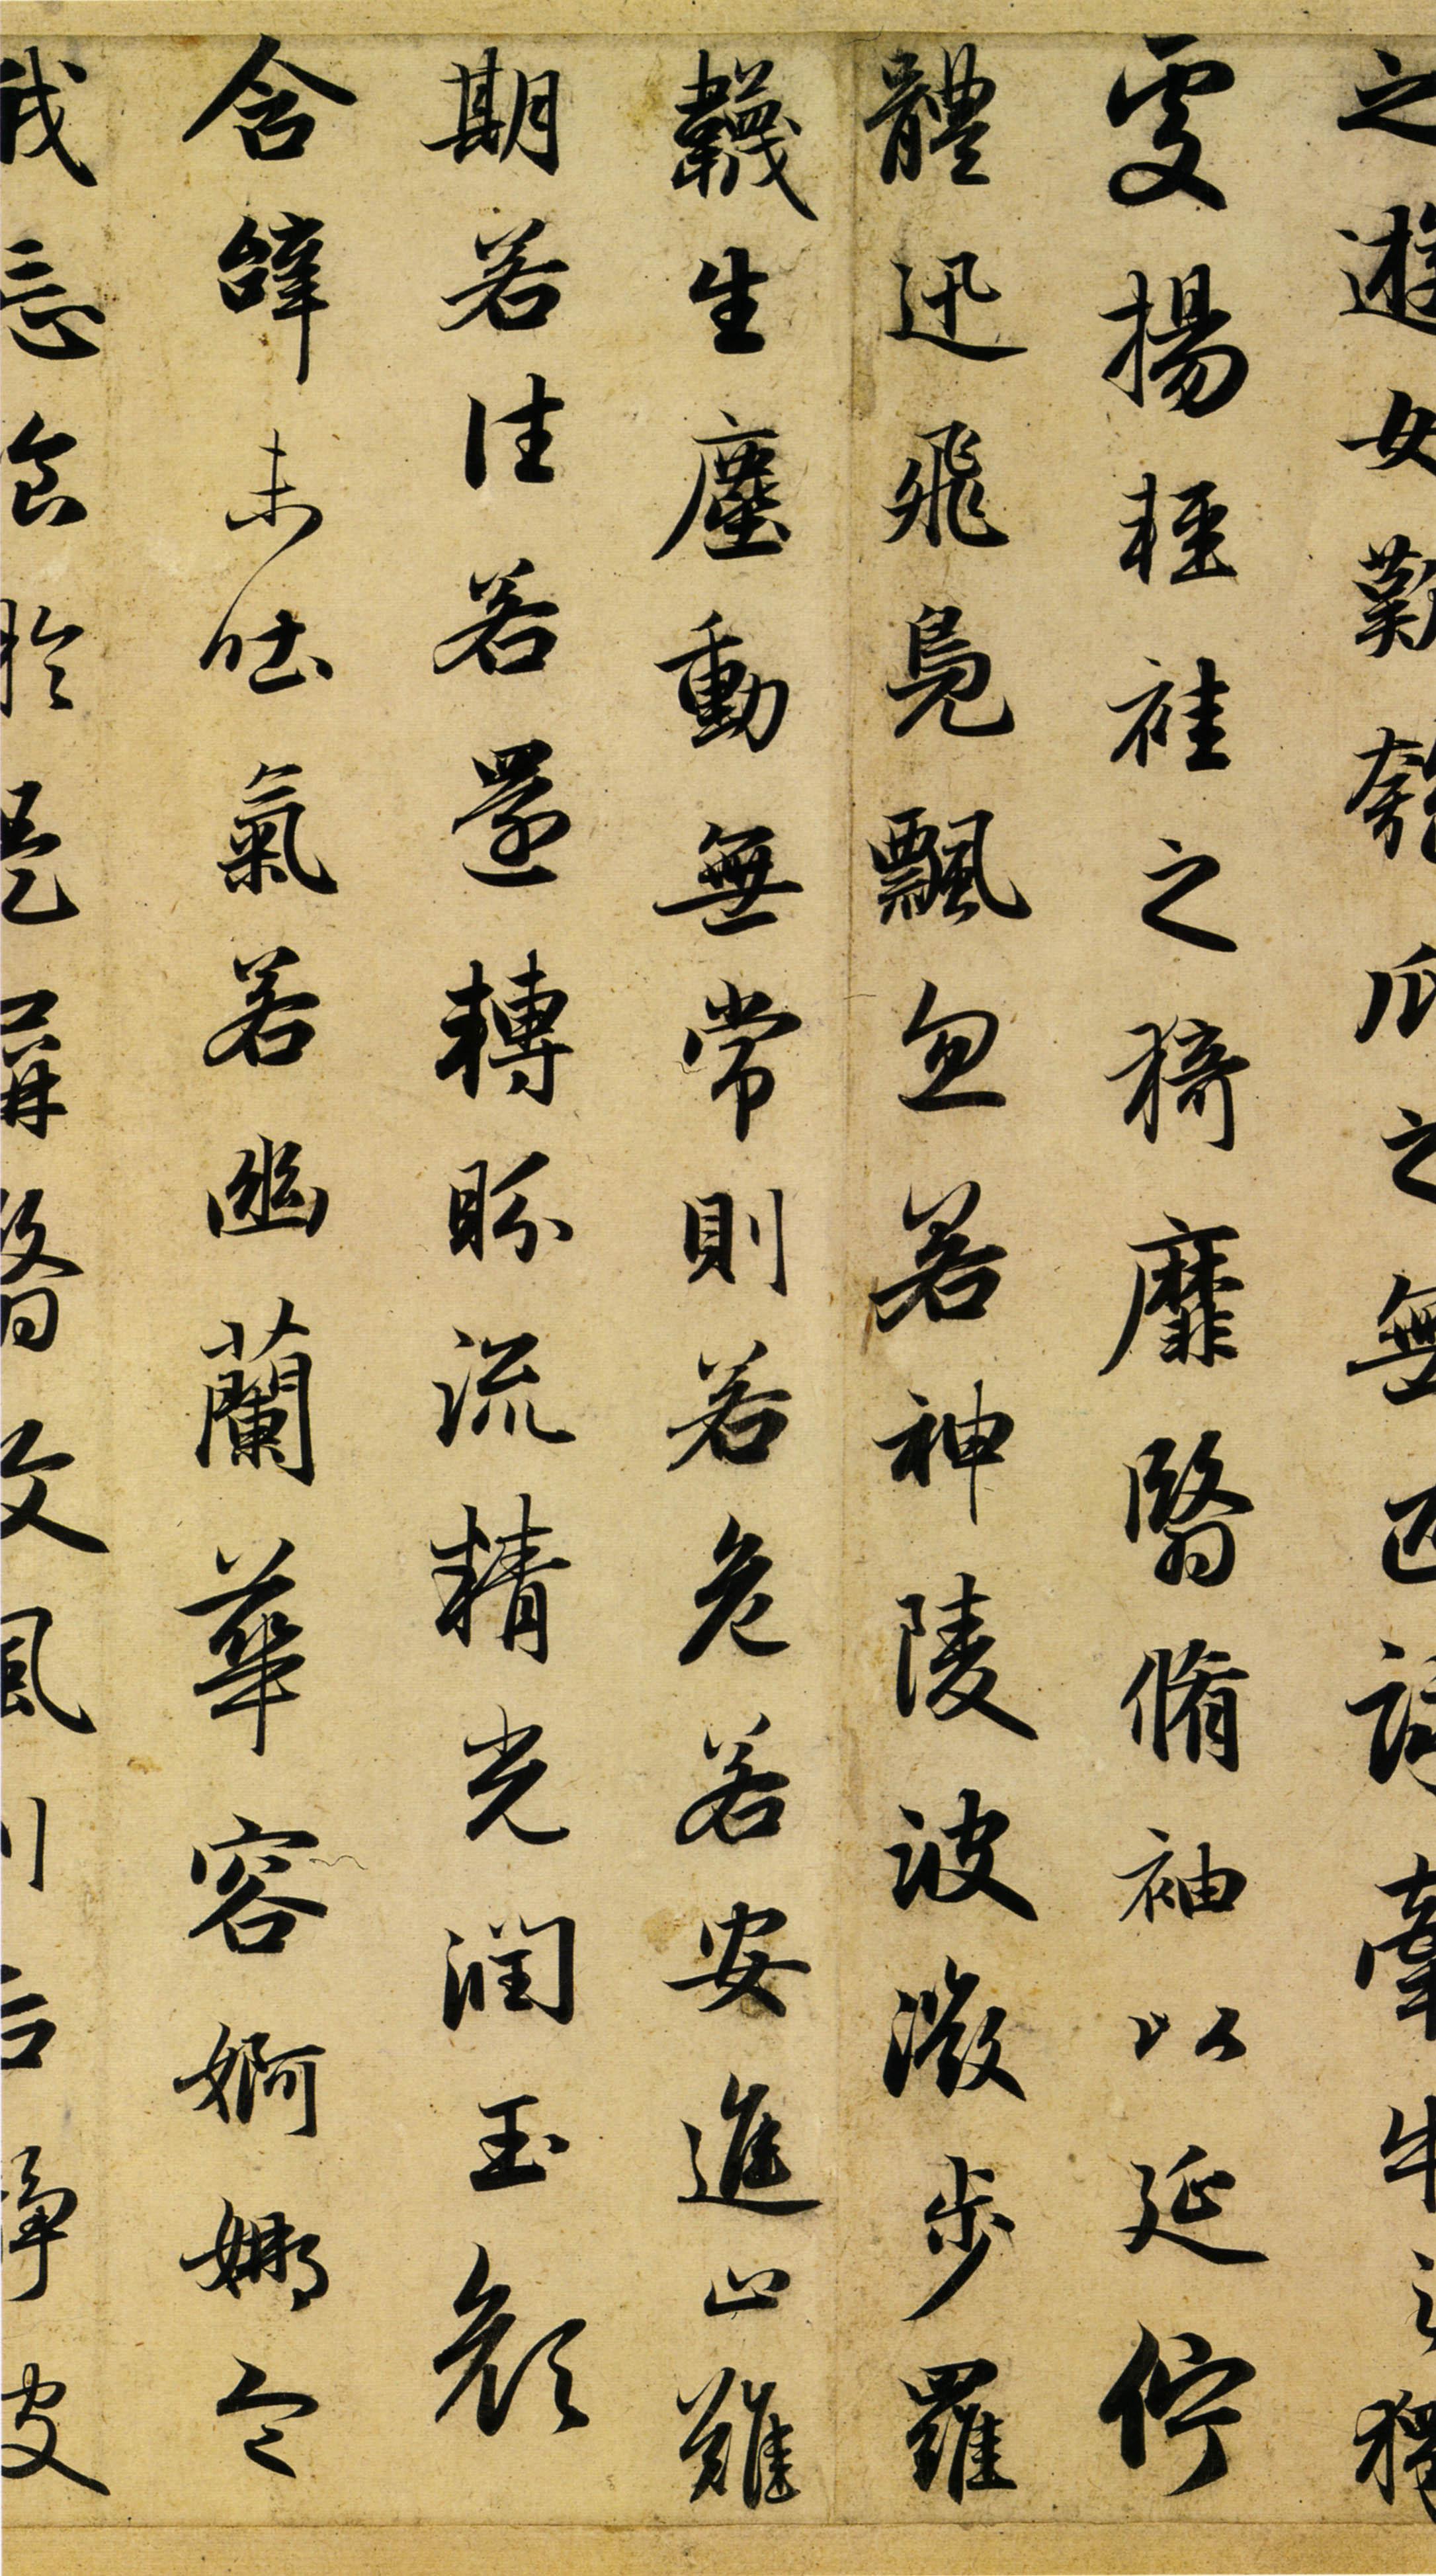 之遊女歎匏瓜之無匹詠牽牛之獨
處揚輕袿之猗靡翳脩袖以延佇
體迅飛鳧飄忽若神陵波微步羅
韈生塵動無常則若危若安進止難
期若往若還轉眄流精光潤玉顏
含辭未吐氣若幽蘭華容婀娜令
我忘食於是屏翳收風川后靜波